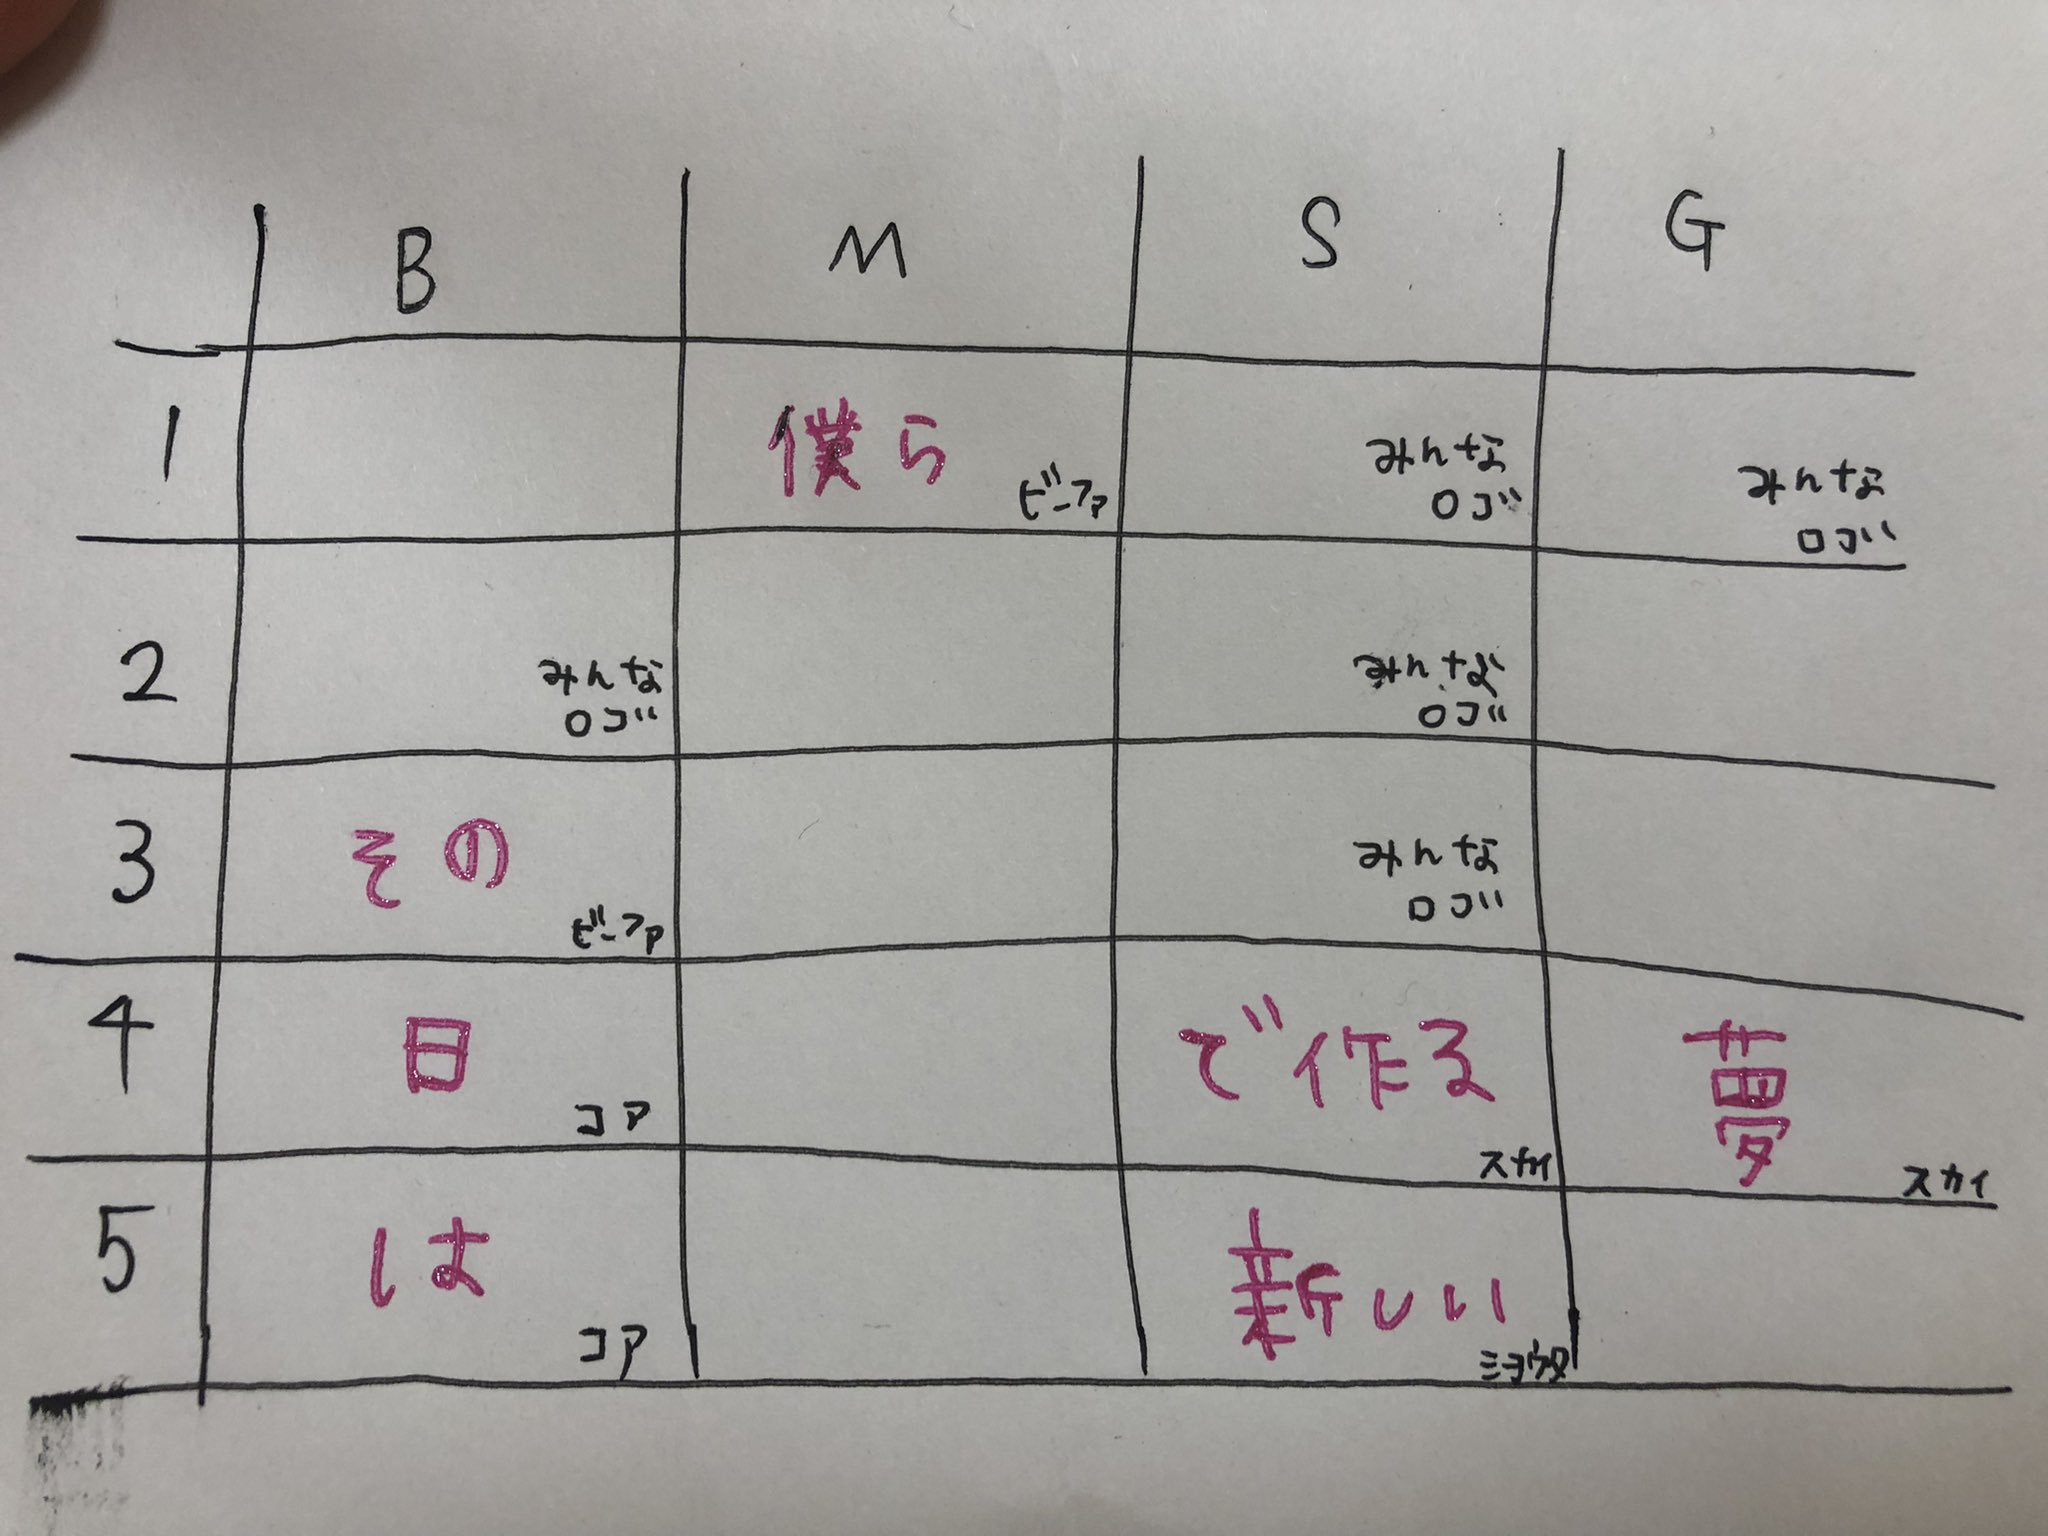 B M S G
1 僕ら ビーファ みんなロゴ みんなロゴ
2 みんなロゴ みんなロゴ
3 その ビーファ みんなロゴ
4 日 コア で作る スカイ 夢 スカイ
5 は コア 新しい ミヨウタ